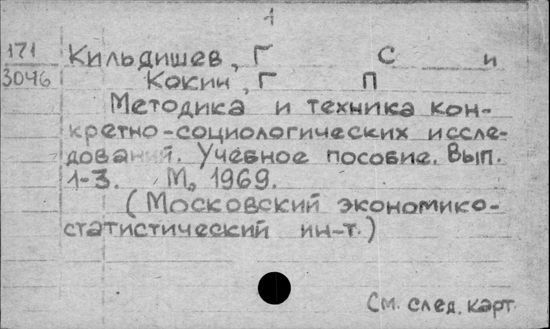 1
171
3046
Кильдишев, Г С и
Кокин, Г П
Методика и техника кон-
кретно-социологических иссле-
дований. Учебное пособие. Вып.
1-3. М., 1969.
(Московский экономико-
статистический ин-т.)
См. след. карт.